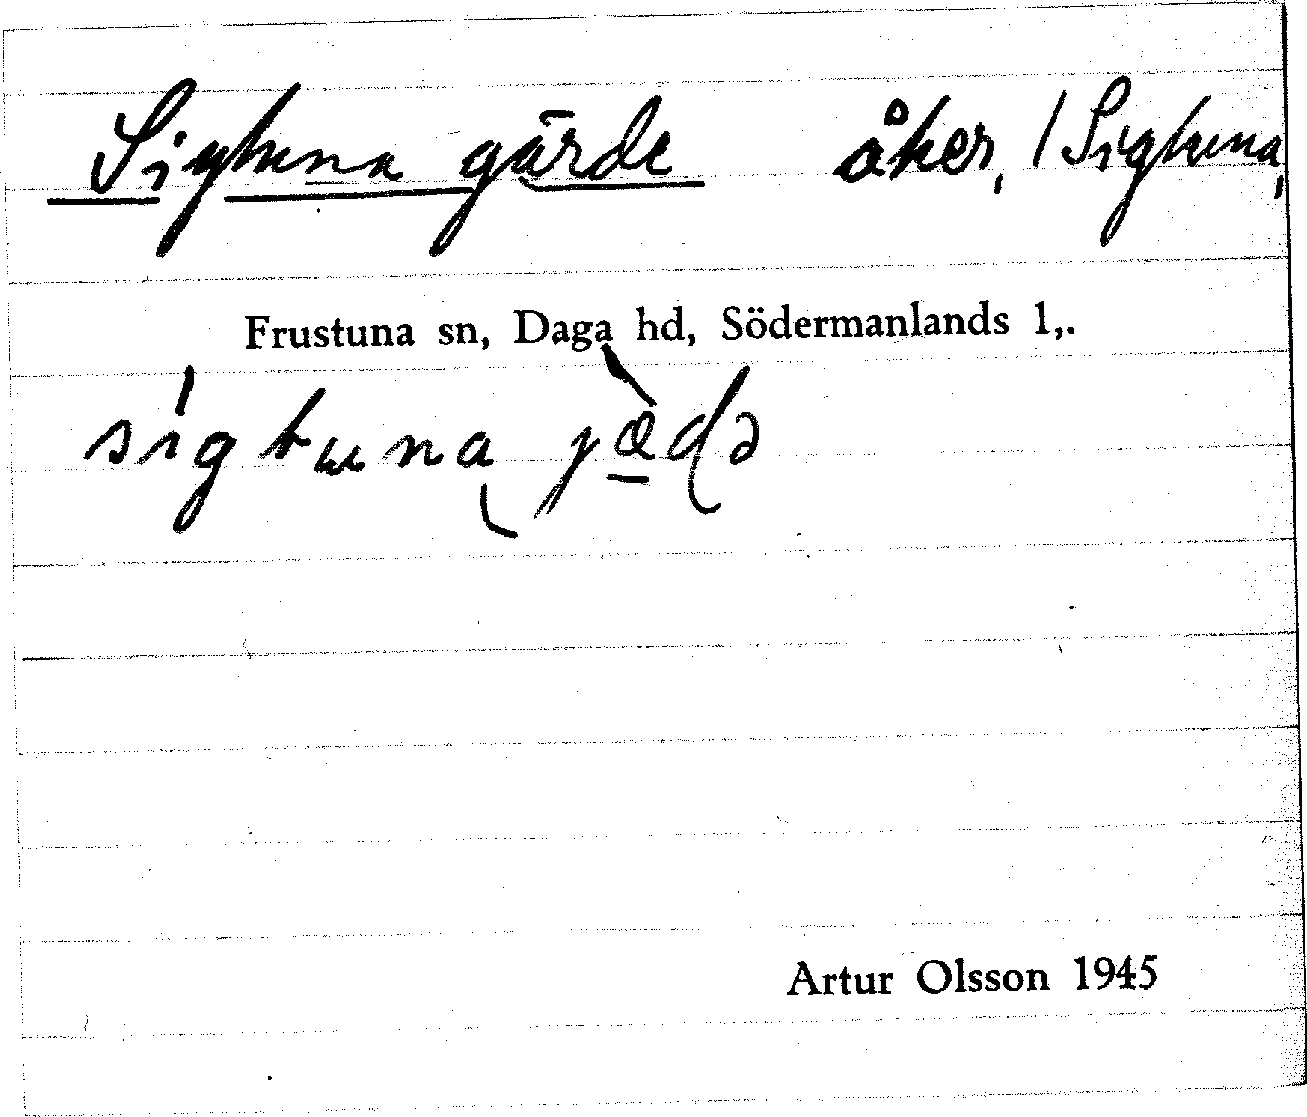 Sigtuna gärde åker, / Sigtuna,
Frustuna sn, Daga hd, Södermanlands l,.
sigtuna jædə
Artur Olsson 1945